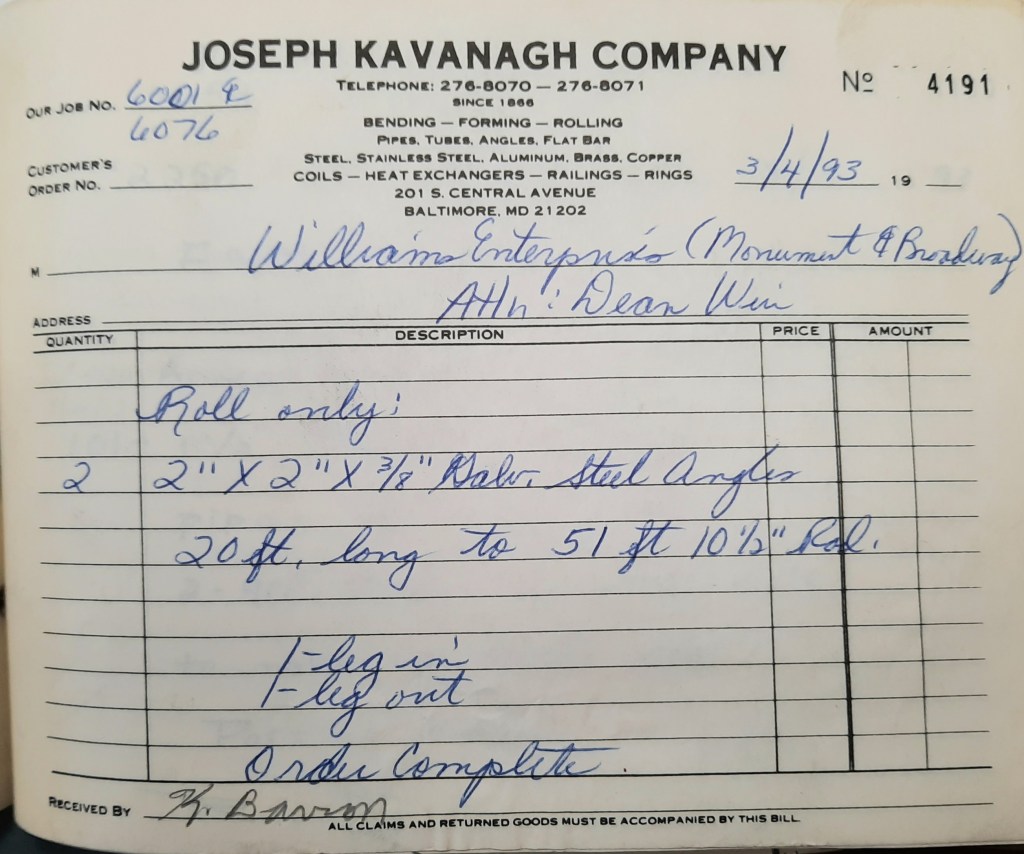 JOSEPH KAVANAGH COMPANY
TELEPHONE: 276-8070 — 276-8071
Nº 4191
SINCE 1866
OUR JOB NO. 6001 &
6076
BENDING — FORMING — ROLLING
PIPES, TUBES, ANGLES, FLAT BAR
STEEL, STAINLESS STEEL, ALUMINUM, BRASS, COPPER
COILS — HEAT EXCHANGERS — RAILINGS — RINGS
201 S. CENTRAL AVENUE
BALTIMORE, MD 21202
CUSTOMER'S
ORDER NO.
3/4/93 19
M Williams Enterprises (Monument & Broadway)
ADDRESS Attn: Dean
QUANTITY DESCRIPTION PRICE AMOUNT
Roll only:
2 2" X 2" X 3/8" Galv. Steel Angles
20 ft. long to 51 ft 10 1/2" Rad.
1-leg in
1-leg out
Order Complete.
RECEIVED BY K. Barron
ALL CLAIMS AND RETURNED GOODS MUST BE ACCOMPANIED BY THIS BILL.